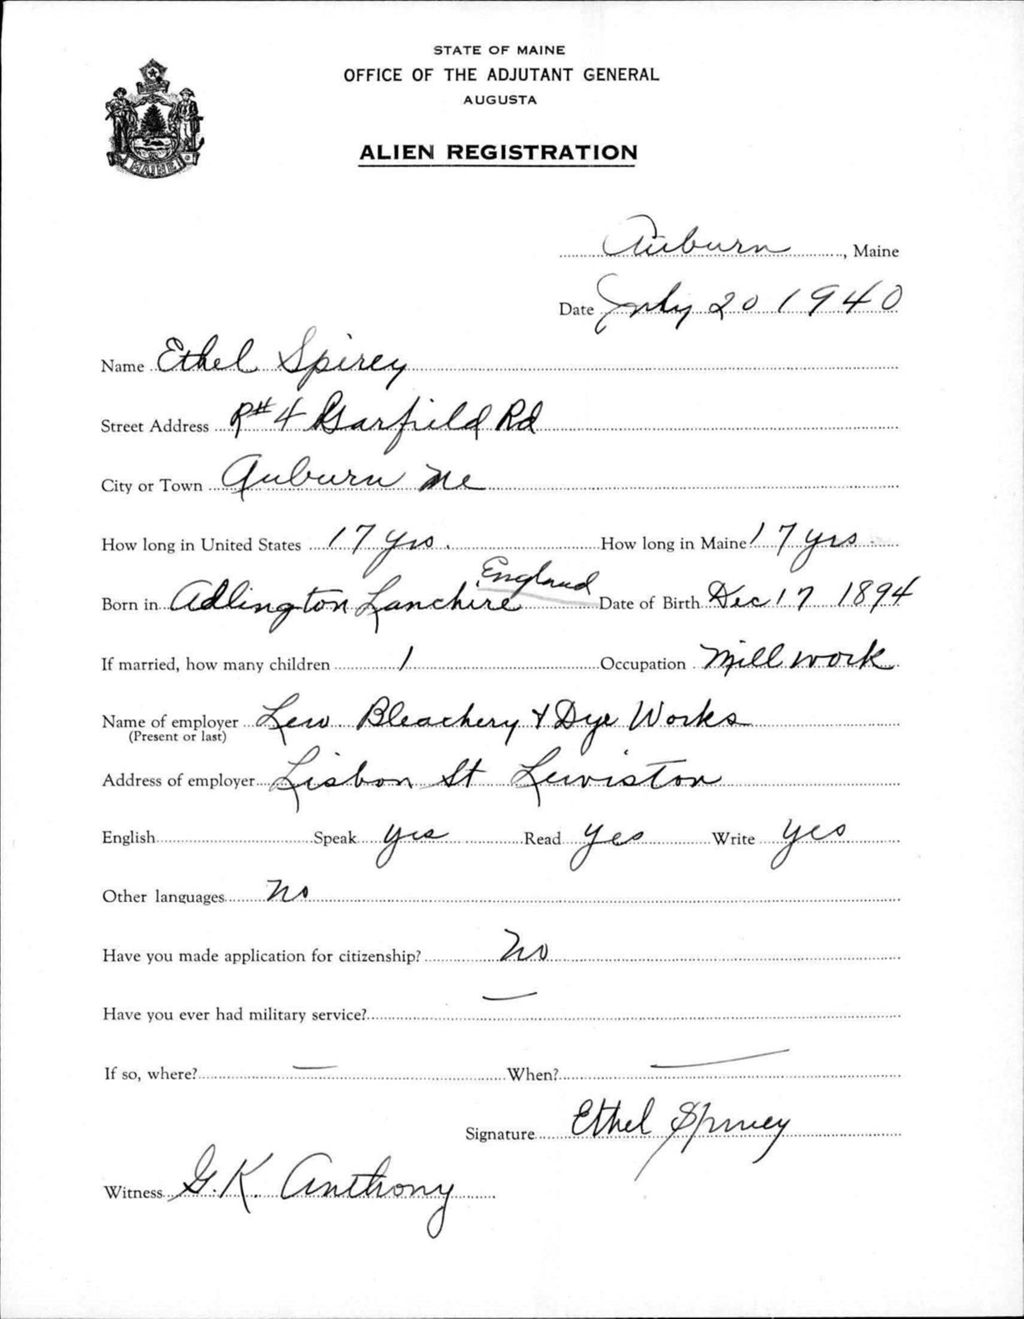 STATE OF MAINE
OFFICE OF THE ADJUTANT GENERAL
AUGUSTA
ALIEN REGISTRATION
MAINE
Auburn, Maine
Date July 20 1940
Name Ethel Spirey
Street Address R#4 Garfield Rd
City or Town Auburn Me
How long in United States 17 yrs. How long in Maine 17 yrs
England
Born in Adlington Lanchire Date of Birth Dec 17 1894
If married, how many children 1 Occupation Mill work
Name of employer Lew Bleachery & Dye Works
(Present or last)
Address of employer Lisbon St Lewiston
English Speak yes Read yes Write yes
Other languages no
Have you made application for citizenship? No
Have you ever had military service? —
If so, where? — When? —
Signature Ethel Spirey
Witness G. K. Anthony